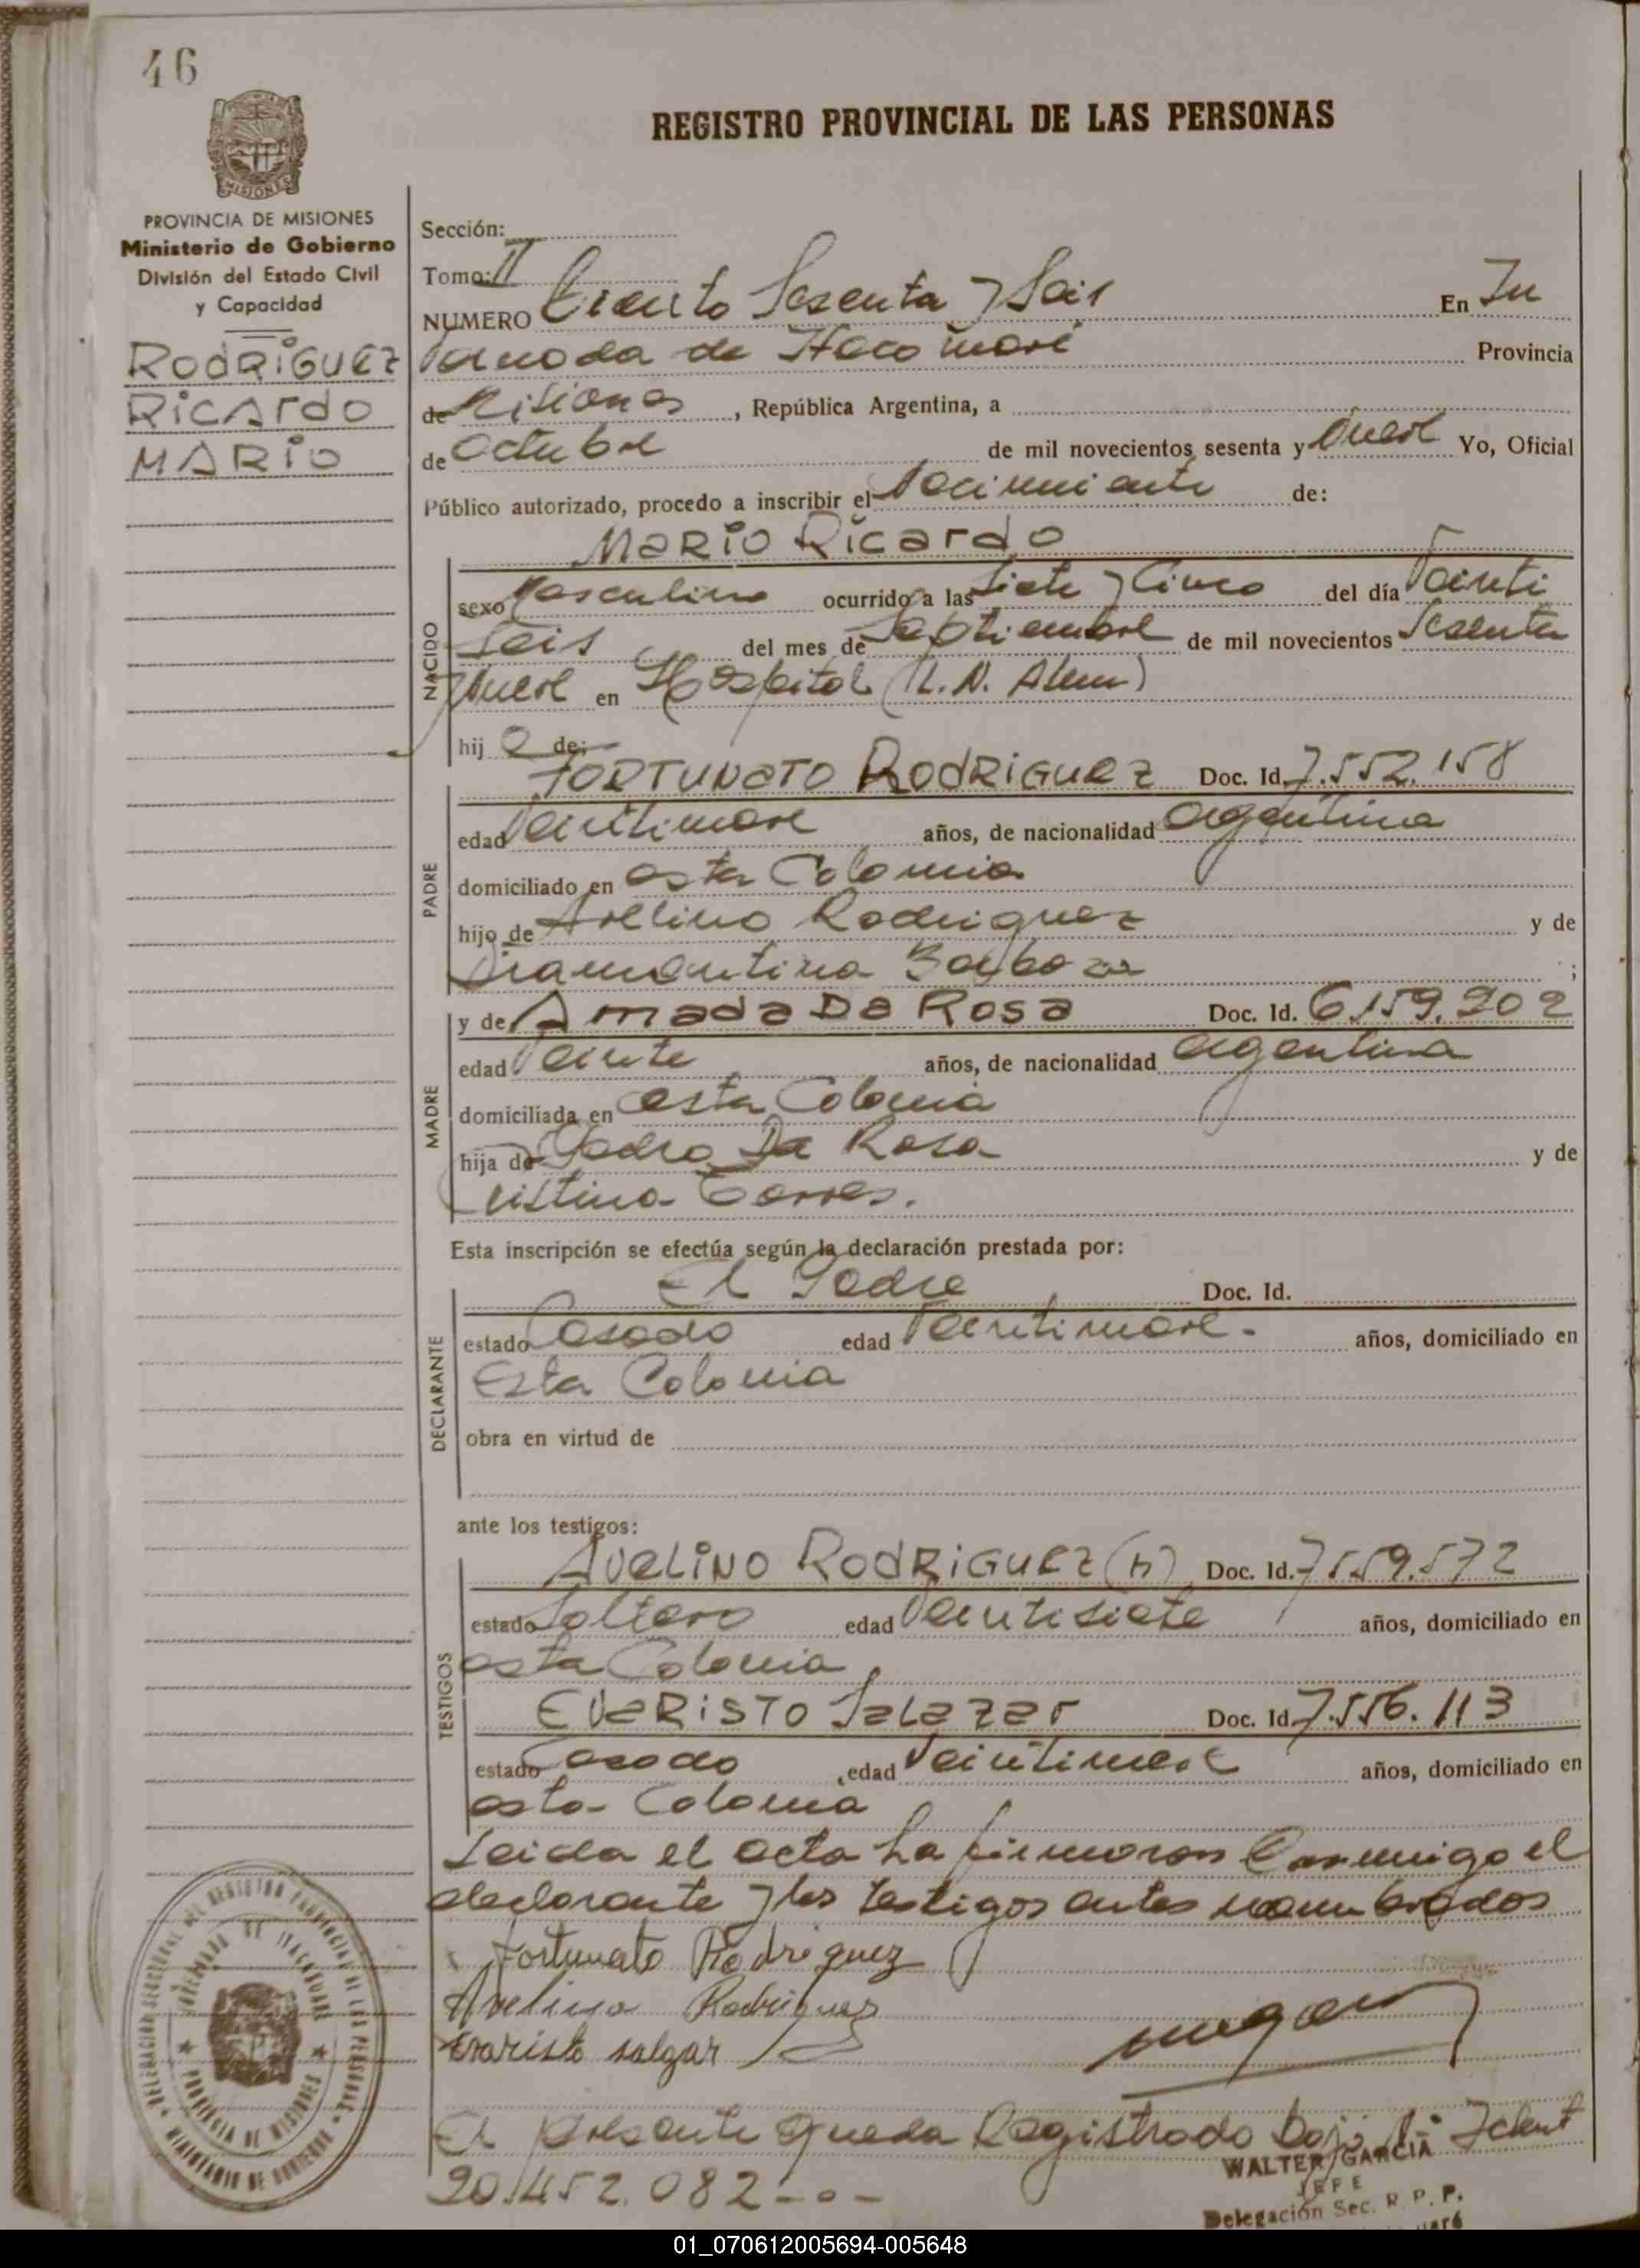 46
REGISTRO PROVINCIAL DE LAS PERSONAS
MISIONES
PROVINCIA DE MISIONES
Ministerio de Gobierno
División del Estado Civil
y Capacidad
RODRIGUEZ
RICARDO
MARIO
Sección:
Tomo: II
NUMERO Ciento Sesenta y Seis En Tu
de Itacaruaré Provincia
de Misiones, República Argentina, a
de Octubre de mil novecientos sesenta y Nueve Yo, Oficial
Público autorizado, procedo a inscribir el Nacimiento de:
MARIO RICARDO
NACIDO
sexo Masculino ocurrido a las Siete y Cinco del día Veinti
Seis del mes de Septiembre de mil novecientos Sesenta
y Nueve en Hospital (L. N. Alem)
hij o de:
PADRE
FORTUNATO RODRIGUEZ Doc. Id. 7.552.158
edad Veintinueve años, de nacionalidad Argentina
domiciliado en esta Colonia
hijo de Avelino Rodriguez y de
Diamantina Barboza ;
MADRE
y de AMADA DA ROSA Doc. Id. 6.159.902
edad Veinte años, de nacionalidad Argentina
domiciliada en esta Colonia
hija de Pedro Da Rosa y de
Cristina Torres.
Esta inscripción se efectúa según la declaración prestada por:
DECLARANTE
El Padre Doc. Id.
estado Casado edad Veintinueve.- años, domiciliado en
Esta Colonia
obra en virtud de
ante los testigos:
TESTIGOS
AVELINO RODRIGUEZ (h) Doc. Id. 7.559.572
estado Soltero edad Veintisiete años, domiciliado en
esta Colonia
EVARISTO SALAZAR Doc. Id. 7.556.113
estado Casado edad Veintinueve años, domiciliado en
esta Colonia
Leida el acta La firmaron Conmigo el
declarante y los testigos antes nombrados
Fortunato Rodriguez
Avelino Rodriguez
Evaristo salgar
DELEGACION SECCIONAL DEL REGISTRO PROVINCIAL DE LAS PERSONAS
MINISTERIO DE GOBIERNO
PROVINCIA DE MISIONES
El presente queda Registrado Bajo Nº Ident
20.452.082-o-
WALTER GARCIA
JEFE
Delegación Sec. R. P. P.
01_070612005694-005648